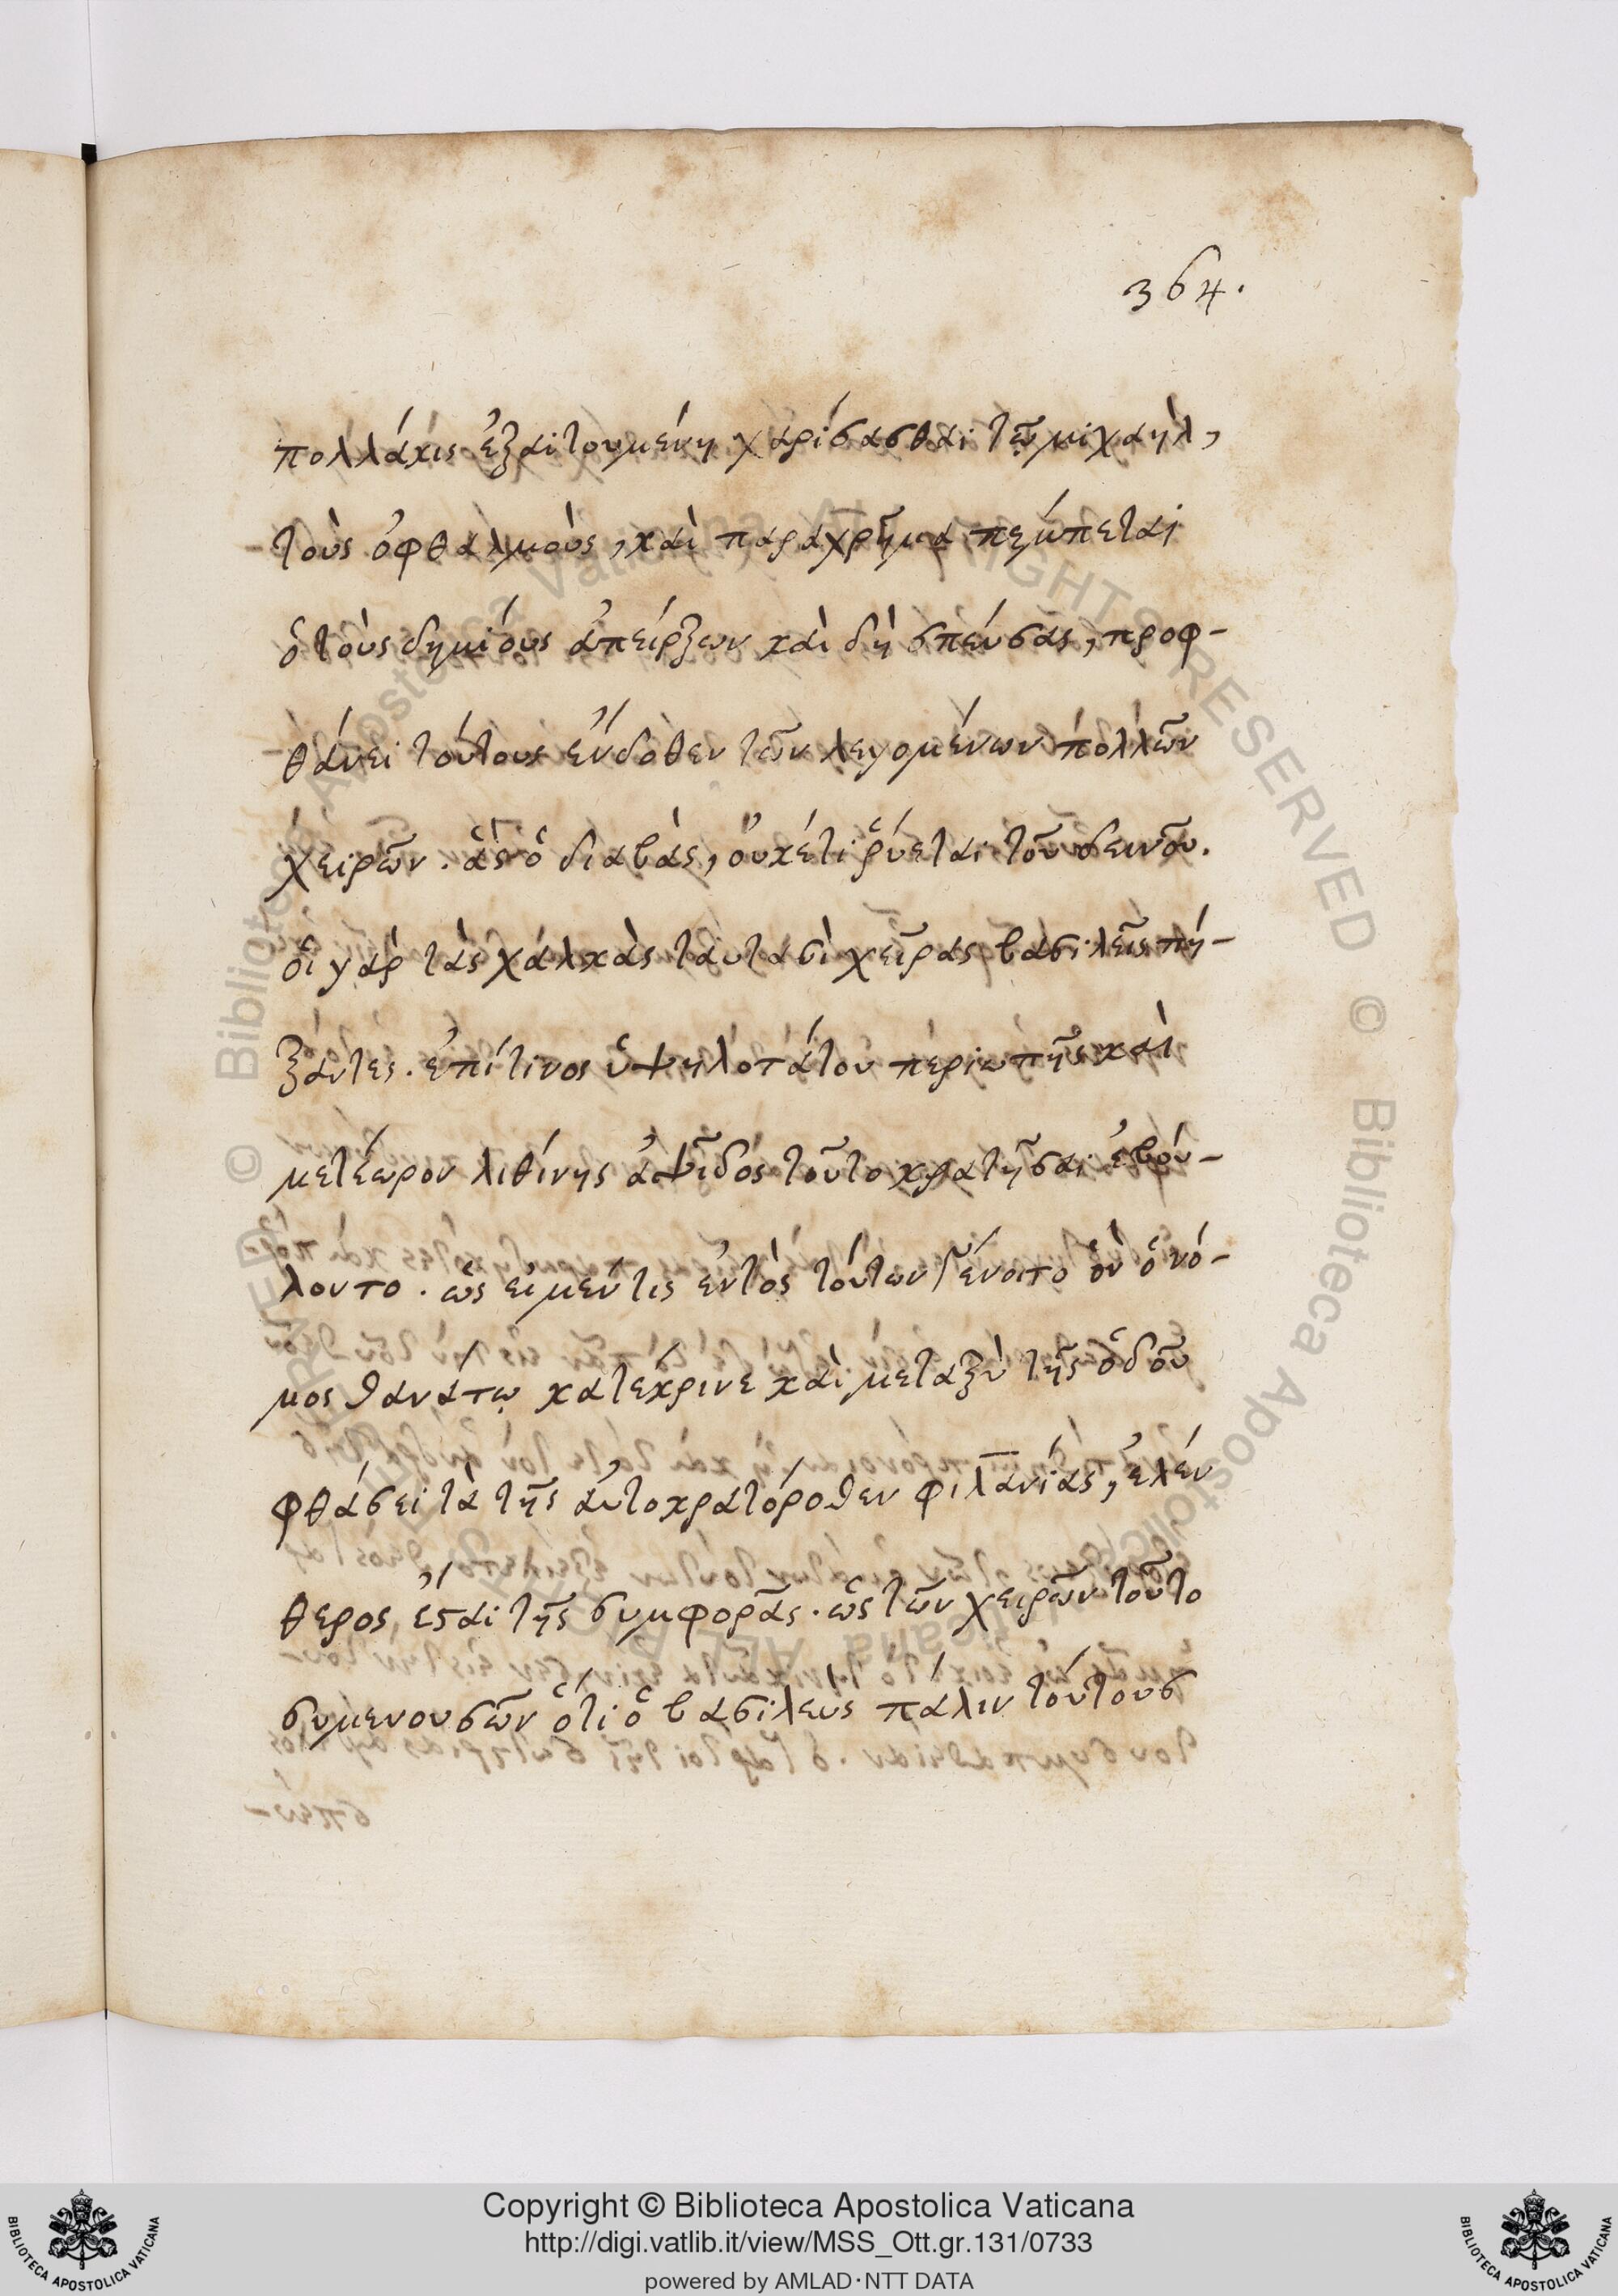 364.
πολλάκις ἐξαιτουμένη χαρίσασθαι τῷ μιχαηλ,
τοὺς ὀφθαλμοὺς, καὶ παραχρῆμα πέμπεται
ὁ τοὺς δημίους ἀπείρξων καὶ δὴ σπεύσας, προφ-
θάνει τούτους ἔνδοθεν τῶν λεγομένων πολλῶν
χειρῶν. ἃς ὁ διαβὰς, οὐκέτι ῥύεται τοῦ δεινοῦ.
οἱ γὰρ τὰς χάλκὰς ταυτασὶ χεῖρας βασιλεῖς πή-
ξάντες. ἐπί τινος ὑψηλοτάτου περιωπῆς καὶ
μετέωρον λιθίνης ἀψῖδος τοῦτο κρατῆσαι ἐβού-
λοντο. ὡς εἰ μέν τις ἐντὸς τούτων γένοιτο ὃν ὁ νό-
μος θανάτῳ κατέκρινε καὶ μεταξὺ τῆς ὁδοῦ
φθάσει τὰ τῆς αὐτοκρατόροθεν φιλανίας, ἐλεύ
θερος ἔσται τῆς συμφορᾶς. ὡς τῶν χειρῶν τοῦτο
συμενουσῶν ὅτι ὁ βασιλευς πάλιν τούτους
© Biblioteca Apostolica Vaticana ALL RIGHTS RESERVED
Copyright © Biblioteca Apostolica Vaticana
http://digi.vatlib.it/view/MSS_Ott.gr.131/0733
powered by AMLAD·NTT DATA
BIBLIOTECA APOSTOLICA VATICANA
BIBLIOTECA APOSTOLICA VATICANA